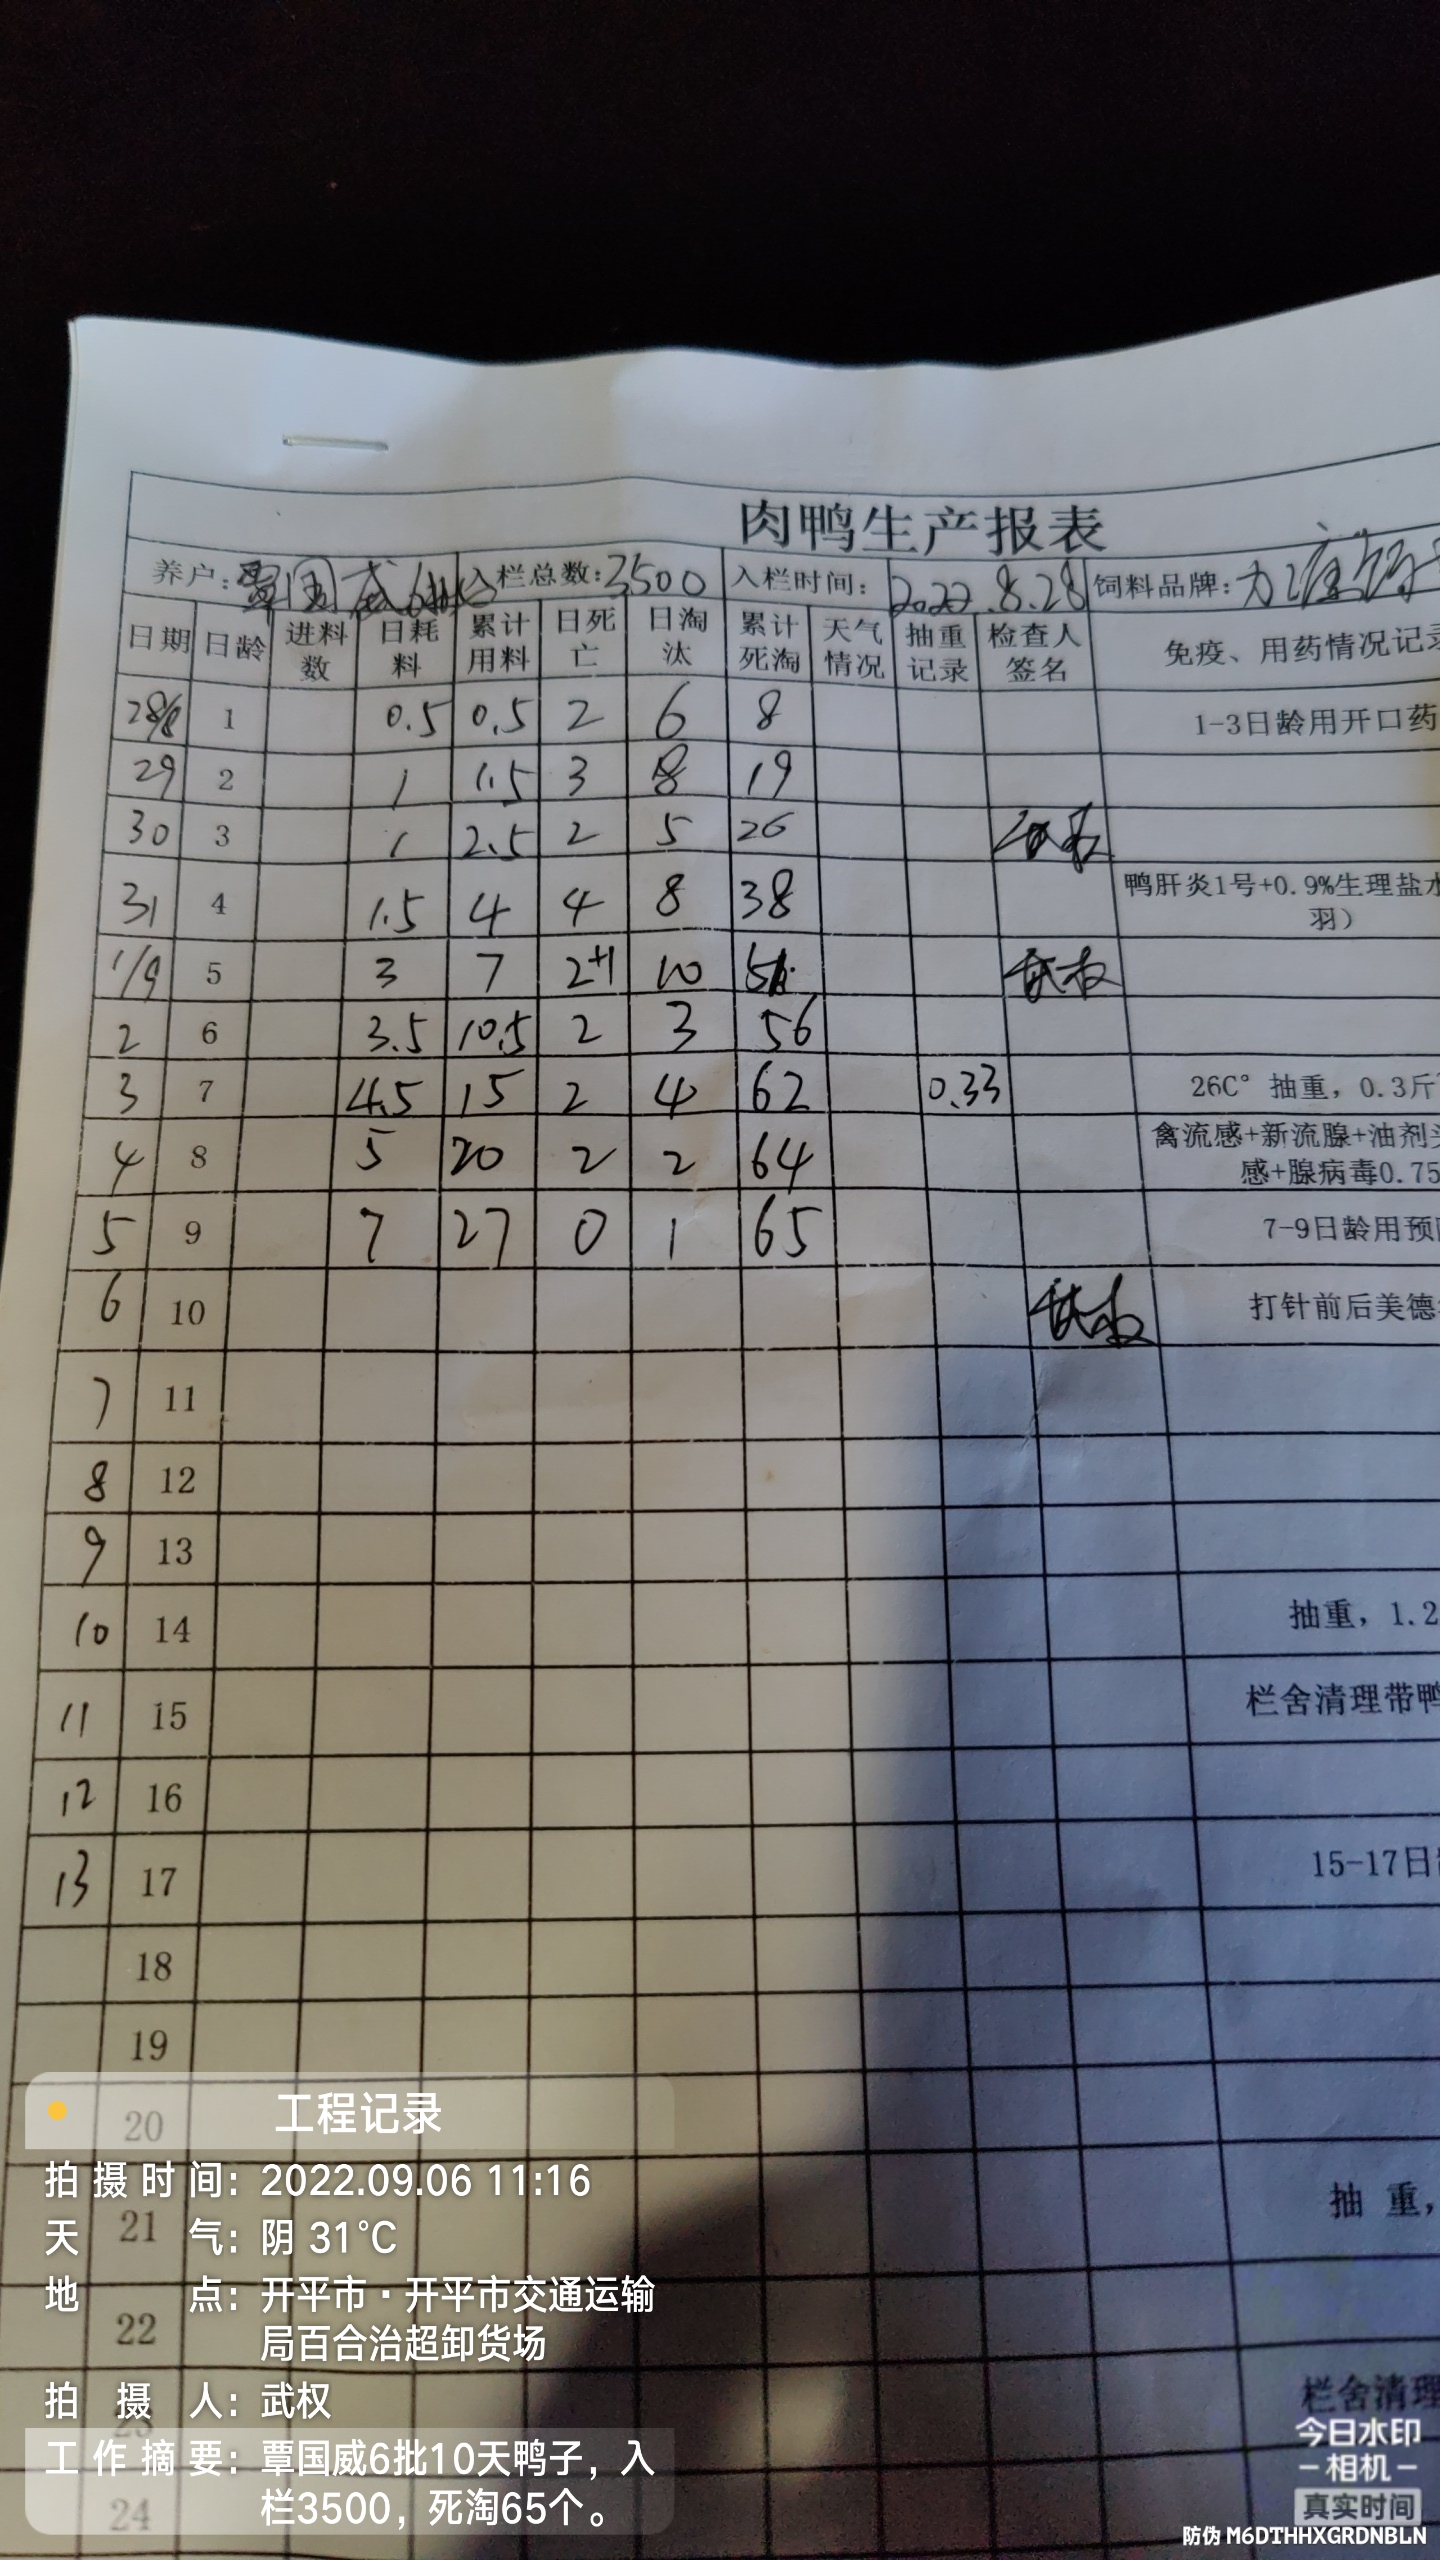 肉鸭生产报表
养户：覃国威6批 入栏总数：3500 入栏时间：2022.8.28 饲料品牌：
日期 日龄 进料数 日耗料 累计用料 日死亡 日淘汰 累计死淘 天气情况 抽重记录 检查人签名 免疫、用药情况记录
28/8 1 0.5 0.5 2 6 8 1-3日龄用开口药
29 2 1 1.5 3 8 19
30 3 1 2.5 2 5 26 武权
31 4 1.5 4 4 8 38 鸭肝炎1号+0.9%生理盐水
羽）
1/9 5 3 7 2+1 10 51 武权
2 6 3.5 10.5 2 3 56
3 7 4.5 15 2 4 62 0.33 26C° 抽重，0.3斤
4 8 5 20 2 2 64 禽流感+新流腺+油剂
感+腺病毒0.75
5 9 7 27 0 1 65 7-9日龄用预
6 10 武权 打针前后美德
7 11
8 12
9 13
10 14 抽重，1.2
11 15 栏舍清理带鸭
12 16
13 17 15-17日
18
19
20
21 抽 重，
22
23 栏舍清理
24
工程记录
拍摄时间：2022.09.06 11:16
天气：阴 31°C
地点：开平市·开平市交通运输
局百合治超卸货场
拍摄人：武权
工作摘要：覃国威6批10天鸭子，入
栏3500，死淘65个。
今日水印
相机
真实时间
防伪 M6DTHHXGRDNBLN